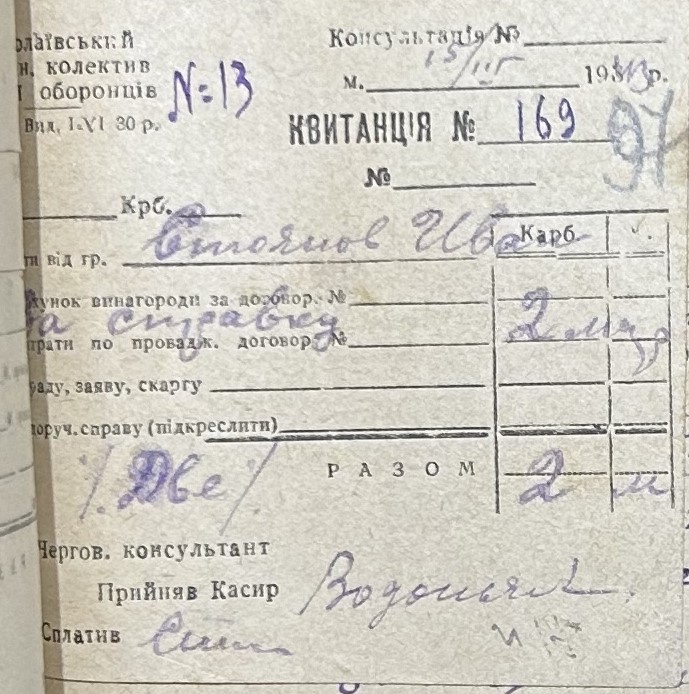 олаївський
н. колектив
і оборонців
N=13
Вид. I-VI 30 р.
Консультація №
м. 15/III 1943 р.
КВИТАНЦІЯ № 169
97
№
Крб.
Карб.
ти від гр. Стоянов Ива
хунок винагороди за договор. №
за справку 2 м
трати по провадж. договор. №
раду, заяву, скаргу
доруч. справу (підкреслити)
/. Две /.
РАЗОМ 2 м
Чергов. консультант
Прийняв Касир
Сплатив